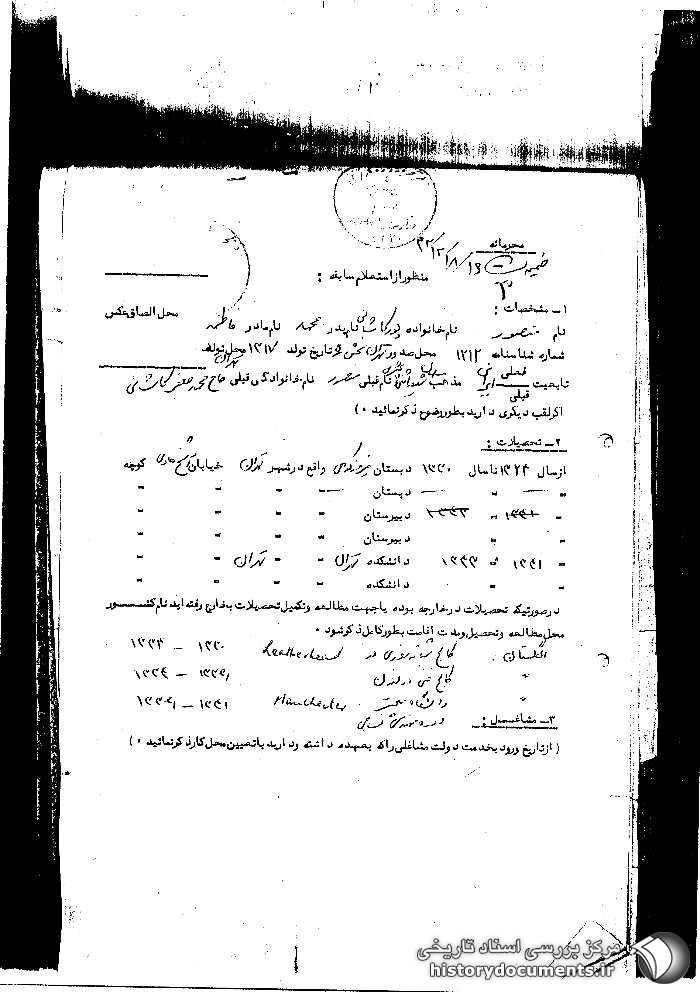 محرمانه
منظور از استعلام سابقه :
۱- مشخصات :
محل الصاق عکس
نام منصور نام خانوادگی پورکاشانی نام پدر محمد نام مادر فاطمه
شماره شناسنامه ۱۲۱۲ محل صدور تهران بخش تاریخ تولد ۱۳۱۷ محل تولد تهران
تابعیت فعلی ایرانی قبلی مذهب نام قبلی منصور نام خانوادگی قبلی حاج محمد جعفر کاشانی
اگر لقب دیگری دارید بطور وضوح ذکر نمائید ۰ )
۲- تحصیلات :
از سال ۱۳۲۴ تا سال ۱۳۳۰ دبستان واقع در شهر تهران خیابان شیخ هادی کوچه
" — " — دبستان — " " " "
" ۱۳۳۱ " ۱۳۳۳ دبیرستان " " " "
" " دبیرستان " " " "
" ۱۳۴۱ " ۱۳۴۳ دانشکده تهران " " تهران " "
" " دانشکده " " " "
در صورتیکه تحصیلات در خارجه بوده یا جهت مطالعه و تکمیل تحصیلات بخارج رفته اید نام کشور
محل مطالعه و تحصیل و مدت اقامت بطور کامل ذکر شود ۰
انگلستان کالج شبانه روزی در Leatherhead ۱۳۳۰ – ۱۳۳۴
" کالج فنی در لندن ۱۳۳۴ –
" دانشگاه Manchester ۱۳۳۶ – ۱۳۴۱
۳- مشاغل :
( از تاریخ ورود بخدمت دولت مشاغلی را که بعهده داشته و دارید با تعیین محل کار ذکر نمائید ۰ )
مرکز بررسی اسناد تاریخی
historydocuments.ir